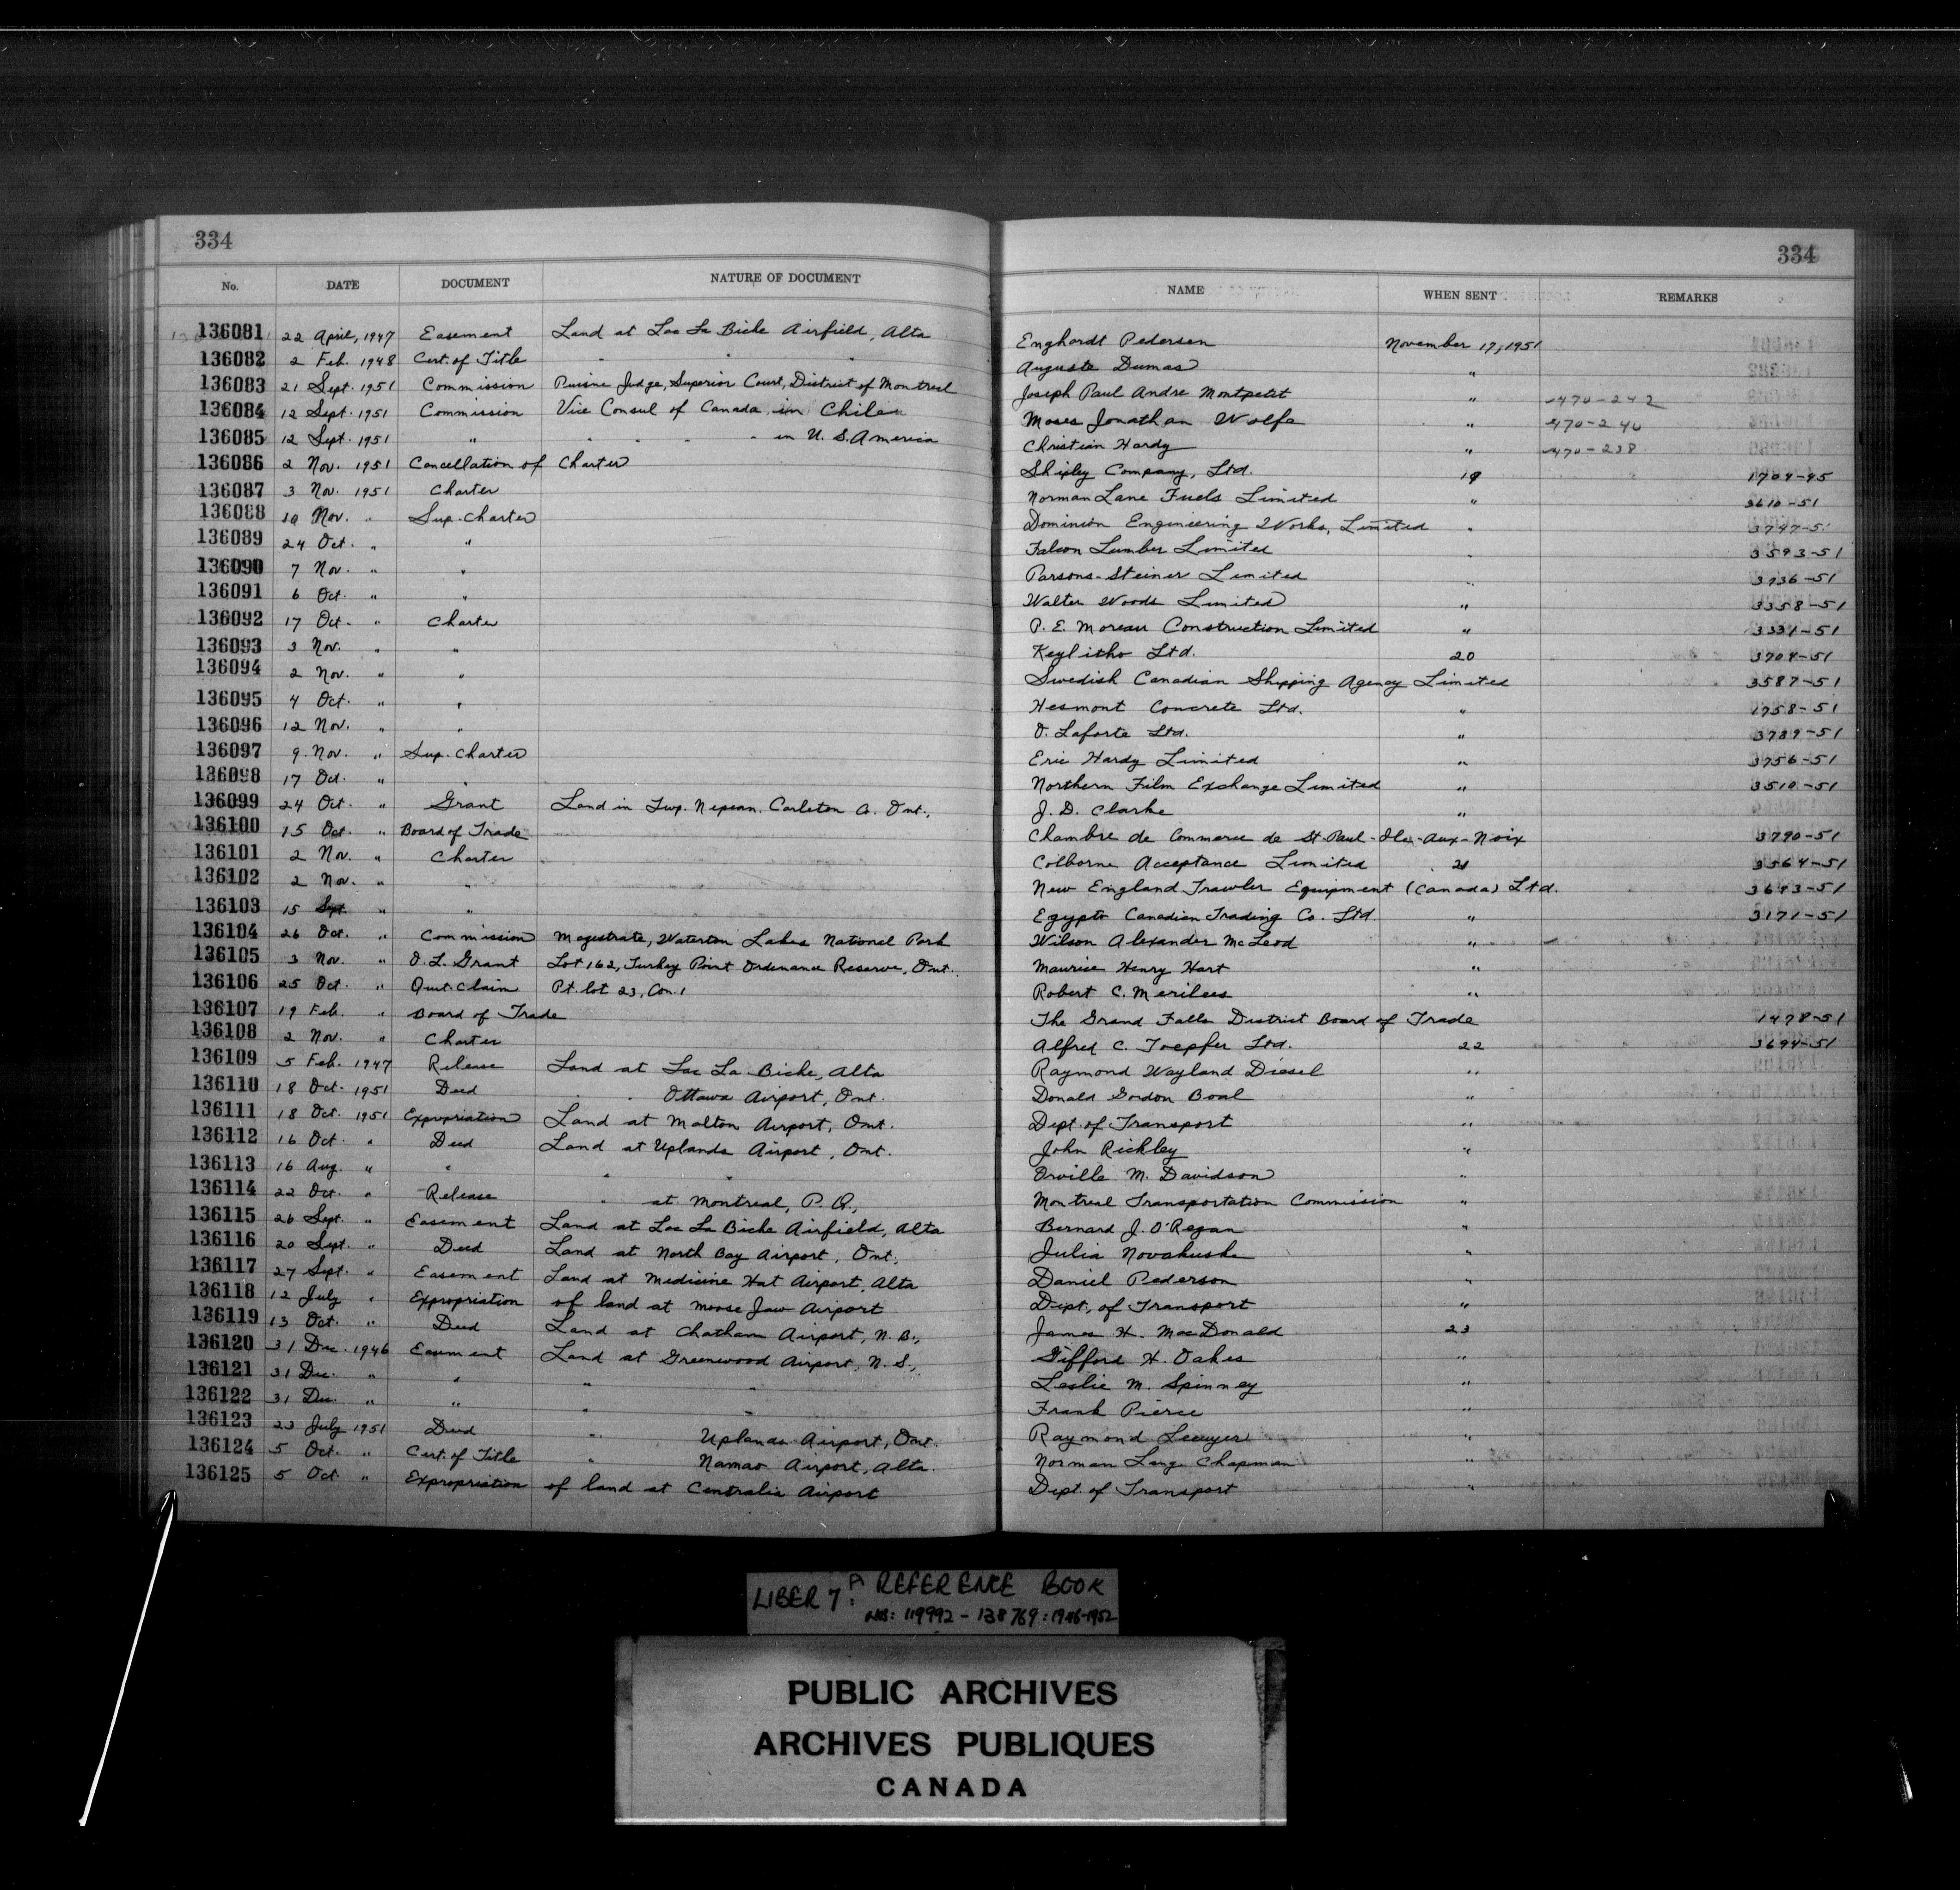 334 334
No. DATE DOCUMENT NATURE OF DOCUMENT NAME WHEN SENT REMARKS
136081 22 April, 1947 Easement Land at Lac La Biche Airfield, Alta Enghardt Pedersen November 17, 1951
136082 2 Feb. 1948 Cert. of Title " " " Auguste Dumas "
136083 21 Sept. 1951 Commission Puisne Judge, Superior Court, District of Montreal Joseph Paul Andre Montpetit " 470-242
136084 12 Sept. 1951 Commission Vice Consul of Canada in Chile Moses Jonathan Wolfe " 470-240
136085 12 Sept. 1951 " " " " " in U. S. America Christian Hardy " 470-238
136086 2 Nov. 1951 Cancellation of Charter Shipley Company, Ltd. 19 1704-45
136087 3 Nov. 1951 Charter Norman Lane Fuels Limited " 3610-51
136088 10 Nov. " Sup. Charter Dominion Engineering Works, Limited " 3747-51
136089 24 Oct. " " Falcon Lumber Limited " 3593-51
136090 7 Nov. " " Parsons-Steiner Limited " 3736-51
136091 6 Oct. " " Walter Woods Limited " 3358-51
136092 17 Oct. " Charter P. E. Moreau Construction Limited " 3331-51
136093 3 Nov. " " Keylitho Ltd. 20 3704-51
136094 2 Nov. " " Swedish Canadian Shipping Agency Limited 3587-51
136095 4 Oct. " " Hesmont Concrete Ltd. " 1758-51
136096 12 Nov. " " O. Laforte Ltd. " 3789-51
136097 9 Nov. " Sup. Charter Eric Hardy Limited " 3756-51
136098 17 Oct. " " Northern Film Exchange Limited " 3510-51
136099 24 Oct. " Grant Land in Twp. Nepean. Carleton Co. Ont., J. D. Clarke "
136100 15 Oct. " Board of Trade Chambre de Commerce de St-Paul-Ile-Aux-Noix 3790-51
136101 2 Nov. " Charter Colborne Acceptance Limited 21 3564-51
136102 2 Nov. " " New England Trawler Equipment (Canada) Ltd. 3643-51
136103 15 Sept. " " Egypto Canadian Trading Co. Ltd. " 3171-51
136104 26 Oct. " Commission Magistrate, Waterton Lakes National Park Wilson Alexander McLeod "
136105 3 Nov. " O. L. Grant Lot 162, Turkey Point Ordnance Reserve, Ont. Maurice Henry Hart "
136106 25 Oct. " Quit Claim Pt. lot 23, Con. 1 Robert C. Merilees "
136107 19 Feb. " Board of Trade The Grand Falls District Board of Trade 1478-51
136108 2 Nov. " Charter Alfred C. Toepfer Ltd. 22 3694-51
136109 5 Feb. 1947 Release Land at Lac La Biche, Alta Raymond Wayland Diesel "
136110 18 Oct. 1951 Deed " " Ottawa Airport, Ont. Donald Gordon Boal "
136111 18 Oct. 1951 Expropriation Land at Malton Airport, Ont. Dept. of Transport "
136112 16 Oct. " Deed Land at Uplands Airport, Ont. John Richley "
136113 16 Aug. " " " " Orville M. Davidson "
136114 22 Oct. " Release " at Montreal, P. Q., Montreal Transportation Commission "
136115 26 Sept. " Easement Land at Lac La Biche Airfield, Alta Bernard J. O'Regan "
136116 20 Sept. " Deed Land at North Bay Airport, Ont. Julia Novakuski "
136117 27 Sept. " Easement Land at Medicine Hat Airport, Alta Daniel Pederson "
136118 12 July " Expropriation of land at Moose Jaw Airport Dept. of Transport "
136119 13 Oct. " Deed Land at Chatham Airport, N. B., James H. MacDonald 23
136120 31 Dec. 1946 Easement Land at Greenwood Airport, N. S., Gifford H. Oakes "
136121 31 Dec. " " " " Leslie M. Spinney "
136122 31 Dec. " " " " Frank Pierce "
136123 23 July 1951 Deed " Uplands Airport, Ont. Raymond Lecuyer "
136124 5 Oct. " Cert. of Title " Namao Airport, Alta. Norman Lang Chapman "
136125 5 Oct. " Expropriation of land at Centralia Airport Dept. of Transport "
LIBER 7A: REFERENCE BOOK
NOS: 119992-138769: 1946-1952
PUBLIC ARCHIVES
ARCHIVES PUBLIQUES
CANADA